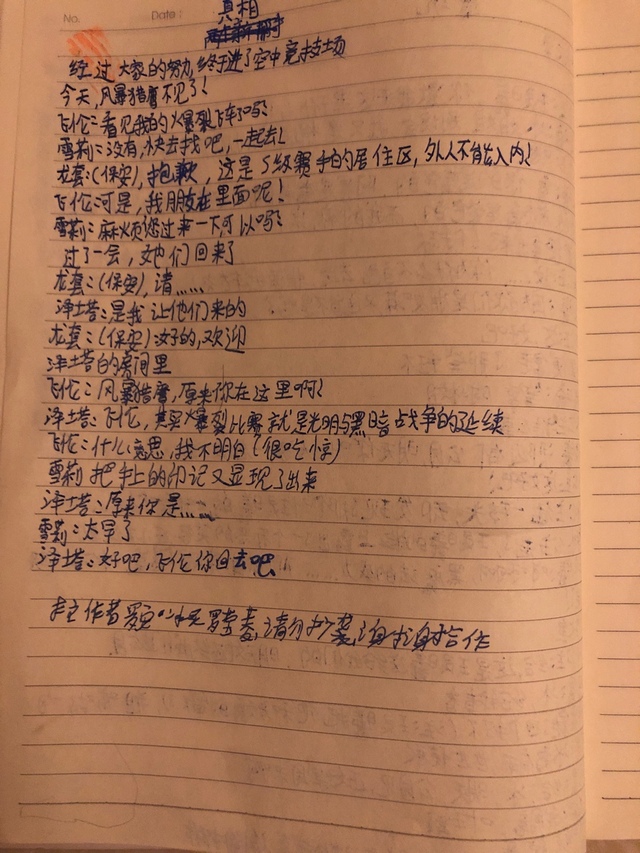 No.
Date
真相
经过大家的努力,终于进了空中竞技场
今天,风暴猎鹰不见了!
飞伦:看见我的爆裂飞车了吗?
雪莉:没有,快去找吧,一起去!
龙套:(保安),抱歉,这是S级赛手的居住区,外人不能出入内!
飞伦:可是,我朋友在里面呢!
雪莉:麻烦您过来一下,可以吗?
过了一会,她们回来了
龙套:(保安),请……
泽塔:是我让他们来的
龙套:(保安)好的,欢迎
泽塔的房间里
飞伦:风暴猎鹰,原来你在这里啊!
泽塔:飞伦,其实爆裂比赛就是光明与黑暗战争的延续
飞伦:什么意思,我不明白(很吃惊)
雪莉把手上的印记又显现了出来
泽塔:原来你是……
雪莉:太早了
泽塔:好吧,飞伦你回去吧
作者 请勿抄袭 合作